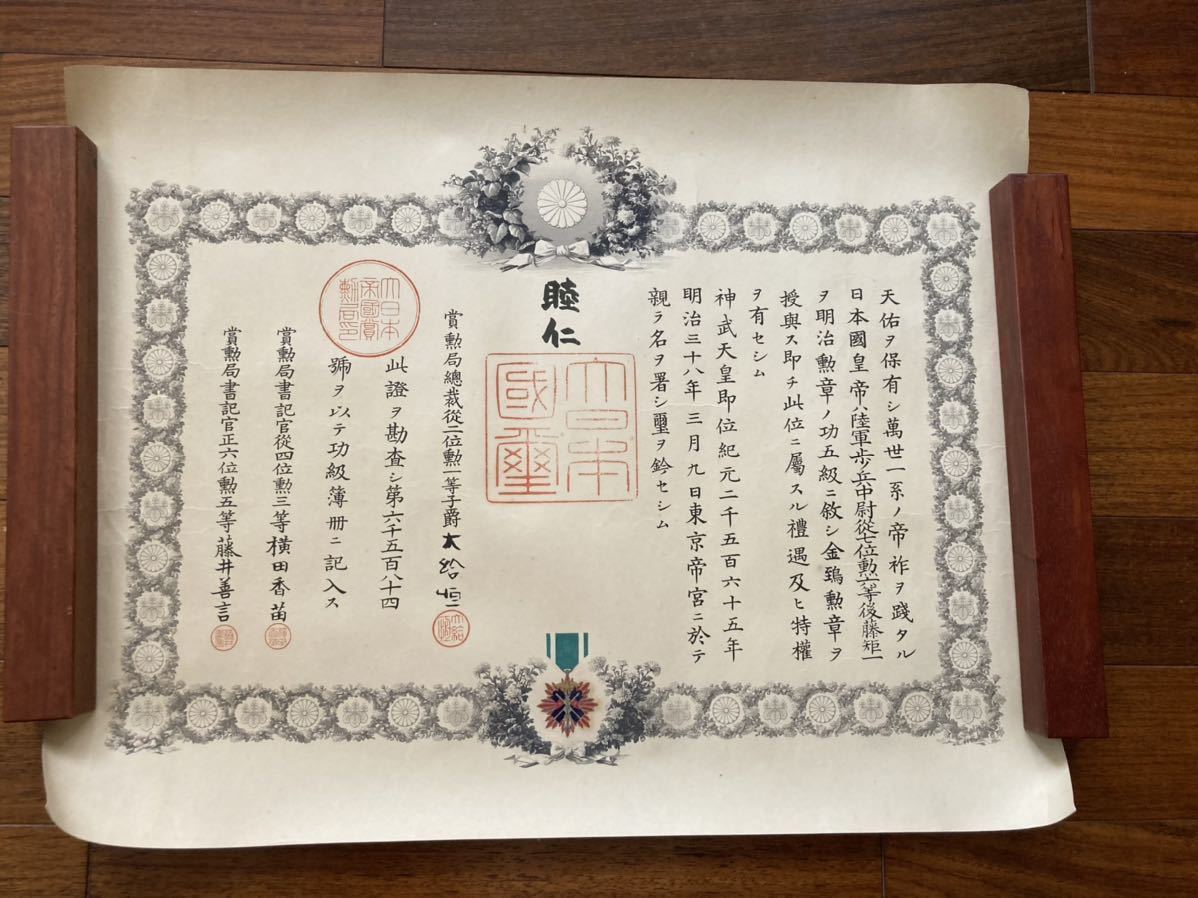 天佑ヲ保有シ萬世一系ノ帝祚ヲ踐タル
日本國皇帝ハ陸軍歩兵中尉從七位勲六等後藤矩一
ヲ明治勲章ノ功五級ニ敘シ金鵄勲章ヲ
授與ス即チ此位ニ屬スル禮遇及ヒ特權
ヲ有セシム
神武天皇即位紀元二千五百六十五年
明治三十八年三月九日東京帝宮ニ於テ
親ラ名ヲ署シ璽ヲ鈐セシム
睦仁
大日本
國璽
賞勲局總裁從二位勲一等子爵大給恒
大日本
帝國賞
勲局印
此證ヲ勘査シ第六千五百八十四
號ヲ以テ功級簿冊ニ記入ス
賞勲局書記官從四位勲三等横田香苗
賞勲局書記官正六位勲五等藤井善言